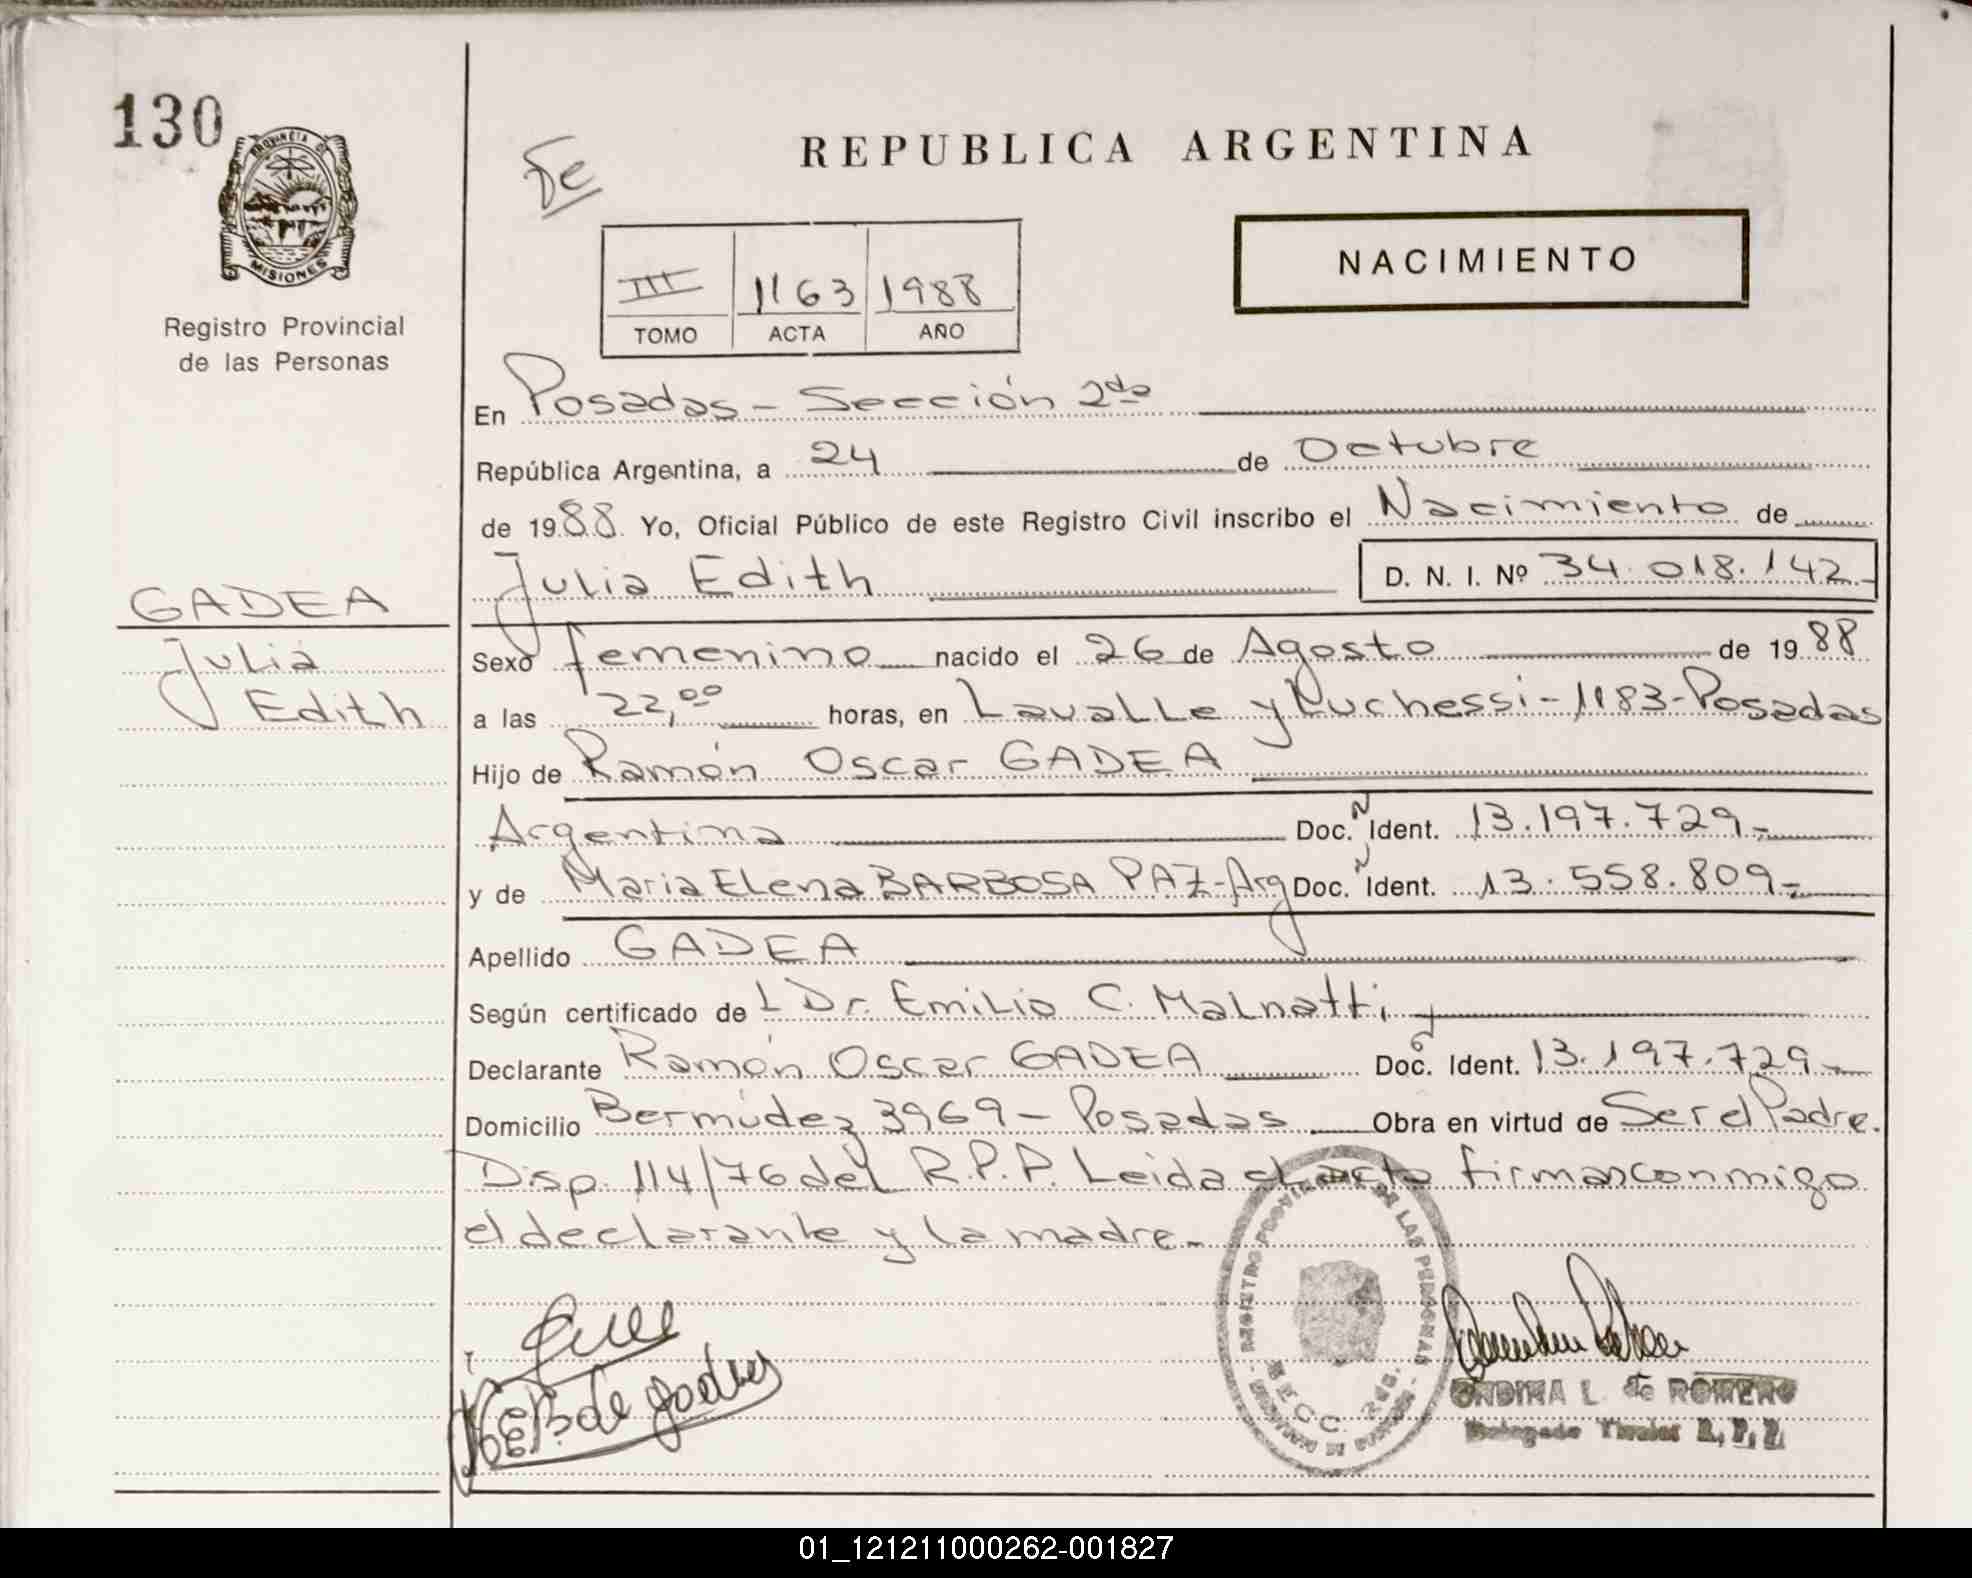 130
PROVINCIA DE
MISIONES
Registro Provincial
de las Personas
REPUBLICA ARGENTINA
NACIMIENTO
III 1163 1988
TOMO ACTA AÑO
En Posadas - Sección 2da
República Argentina, a 24 de Octubre
de 1988 Yo, Oficial Público de este Registro Civil inscribo el Nacimiento de
Julia Edith D. N. I. Nº 34.018.142
GADEA
Julia
Edith
Sexo femenino nacido el 26 de Agosto de 1988
a las 22,00 horas, en Lavalle y Luchessi - 1183 - Posadas
Hijo de Ramón Oscar GADEA
Argentina Doc. Ident. 13.197.729-
y de Maria Elena BARBOSA PAZ - Arg Doc. Ident. 13.558.809-
Apellido GADEA
Según certificado de L Dr. Emilio C. Malnatti
Declarante Ramón Oscar GADEA Doc. Ident. 13.197.729-
Domicilio Bermúdez 3969 - Posadas Obra en virtud de Ser el Padre.
Disp. 114/76 del R.P.P. Leida el acta firman conmigo
el declarante y la madre.
REGISTRO PROVINCIAL DE LAS PERSONAS
SECC. 2da.
ONDINA L. de ROMERO
Delegado Titular R.P.P.
01_121211000262-001827